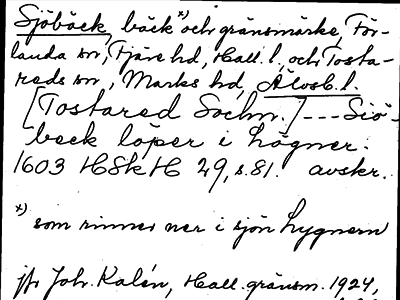 Sjöbäck, bäck x) och gränsmärke, För-
landa sn, Fjäre hd, Hall. l., och Tosta-
reds sn, Marks hd, Älvsb. l.
[Tostared Sochn.] --- Siö-
beck löper i högner.
1603 HSkH 29, s. 81. avskr.
x) som rinner ner i sjön Lygnern
jfr Joh. Kalén, Hall. gränsm. 1924,